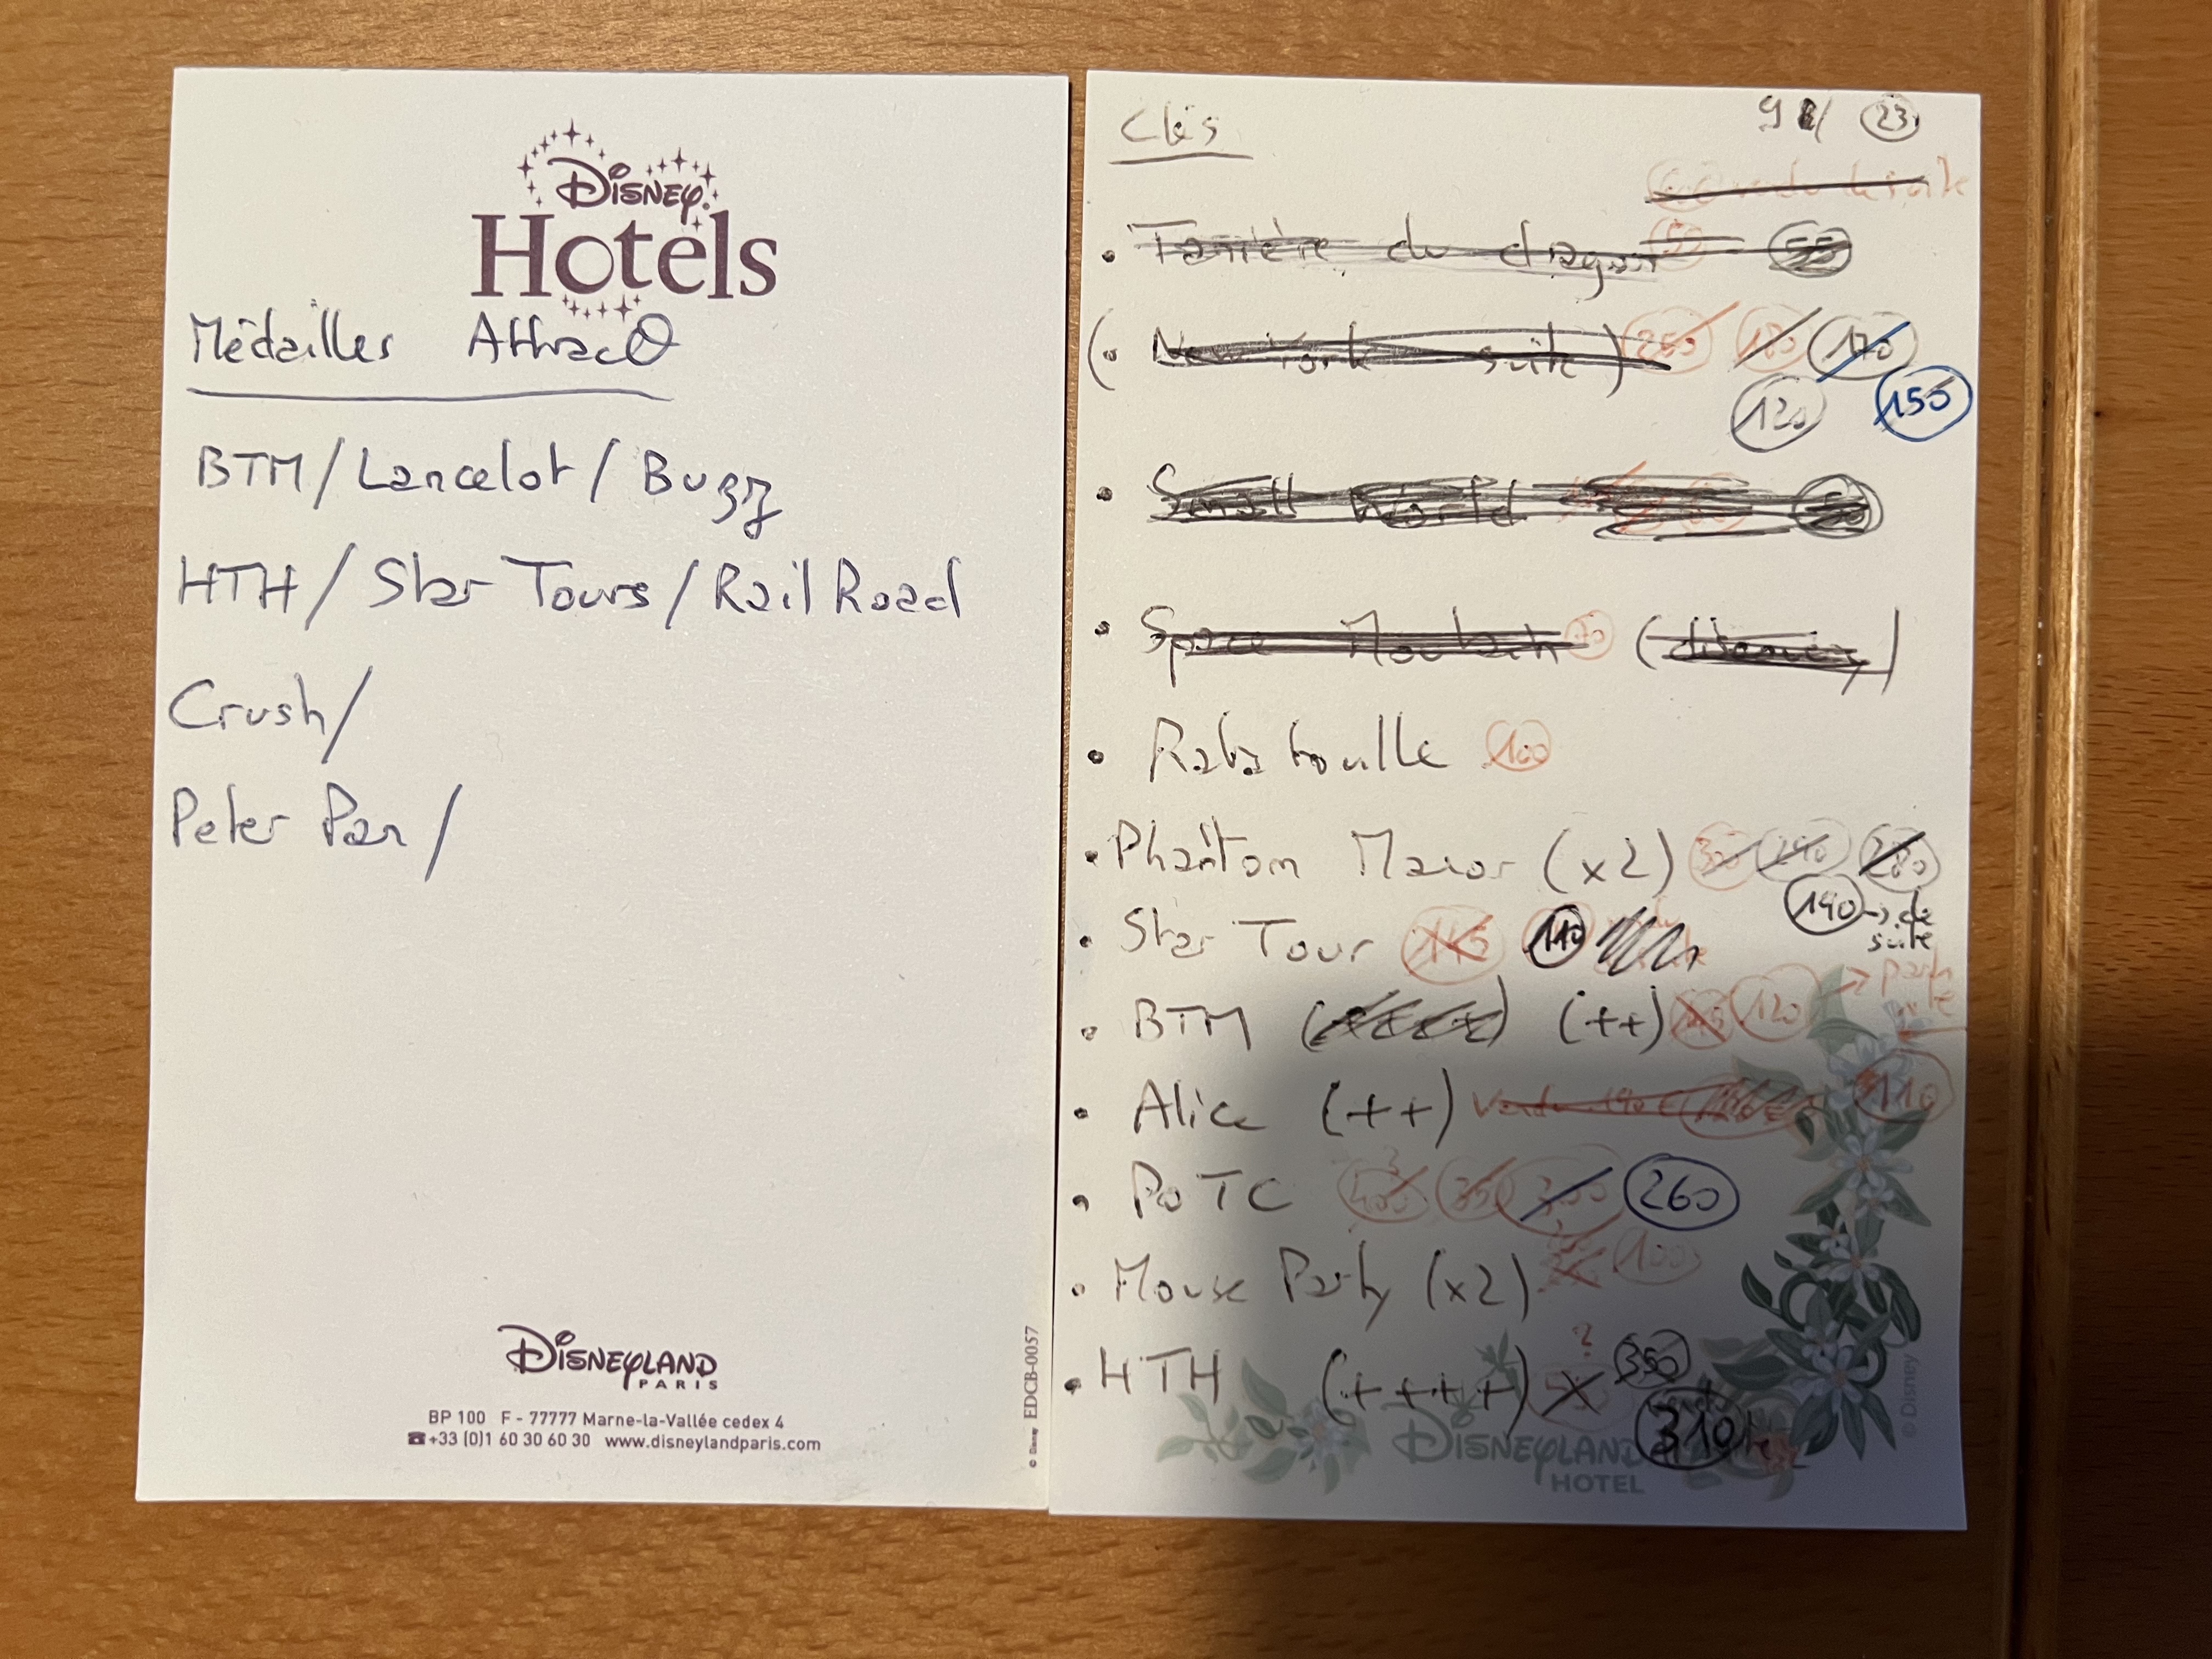 Disney
Hotels
Médailles Attrac°
BTM / Lancelot / Buzz
HTH / Star Tours / Rail Road
Crush /
Peter Pan /
Disneyland
PARIS
BP 100 F - 77777 Marne-la-Vallée cedex 4
☎+33 (0)1 60 30 60 30 www.disneylandparis.com
© Disney EDCB-0057
Clés 9 / 23
vendu de suite
• Tanière du dragon 50 55
(• New York suite) 250 180 170
120 150
• Small World
• Space Mountain (disney)
• Ratatouille 100
• Phantom Manor (x2) 300 290 280
190 → de suite
• Star Tour 145 110
• BTM (++) 120 →
• Alice (++) 110
• PoTC 400 350 300 260
• Mouse Party (x2) 100
• HTH (++++) ? 350
310
Disneyland
HOTEL
© Disney